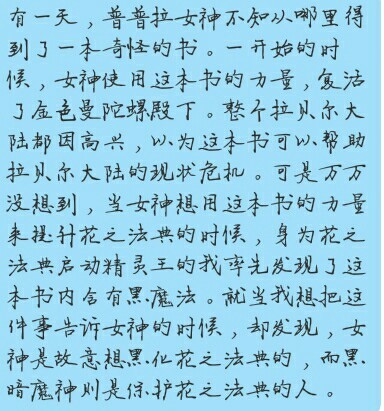 有一天，普普拉女神不知从哪里得
到了一本奇怪的书。一开始的时
候，女神使用这本书的力量，复活
了金色曼陀螺殿下。整个拉贝尔大
陆都因高兴，以为这本书可以帮助
拉贝尔大陆的现状危机。可是万万
没想到，当女神想用这本书的力量
来提升花之法典的时候，身为花之
法典启动精灵王的我率先发现了这
本书内含有黑魔法。就当我想把这
件事告诉女神的时候，却发现，女
神是故意想黑化花之法典的，而黑
暗魔神则是保护花之法典的人。